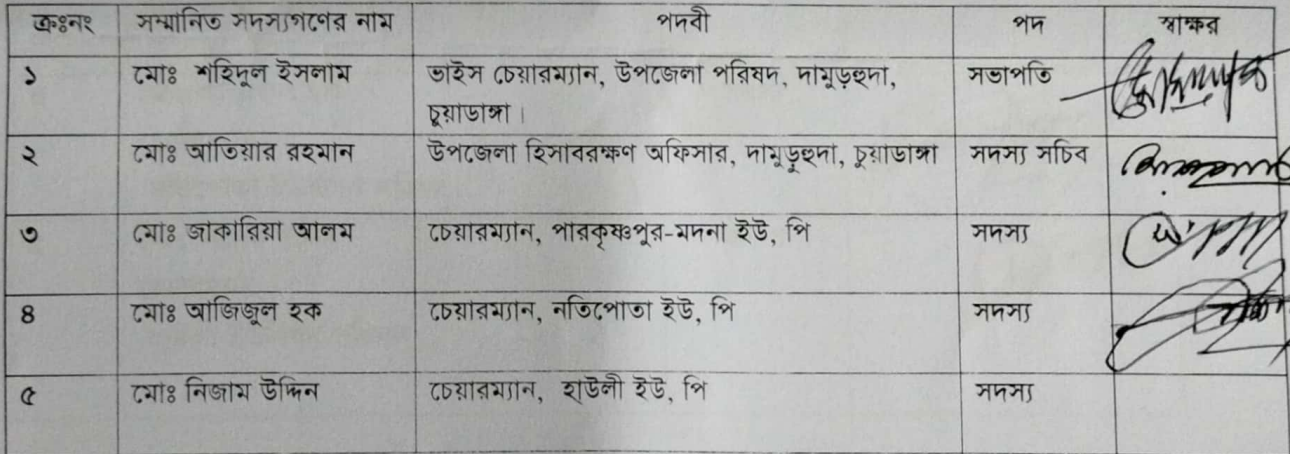 ক্রঃনং সম্মানিত সদস্যগণের নাম পদবী পদ স্বাক্ষর
১ মোঃ শহিদুল ইসলাম ভাইস চেয়ারম্যান, উপজেলা পরিষদ, দামুড়হুদা, সভাপতি
চুয়াডাঙ্গা।
২ মোঃ আতিয়ার রহমান উপজেলা হিসাবরক্ষণ অফিসার, দামুড়হুদা, চুয়াডাঙ্গা সদস্য সচিব
৩ মোঃ জাকারিয়া আলম চেয়ারম্যান, পারকৃষ্ণপুর-মদনা ইউ, পি সদস্য
৪ মোঃ আজিজুল হক চেয়ারম্যান, নতিপোতা ইউ, পি সদস্য
৫ মোঃ নিজাম উদ্দিন চেয়ারম্যান, হাউলী ইউ, পি সদস্য